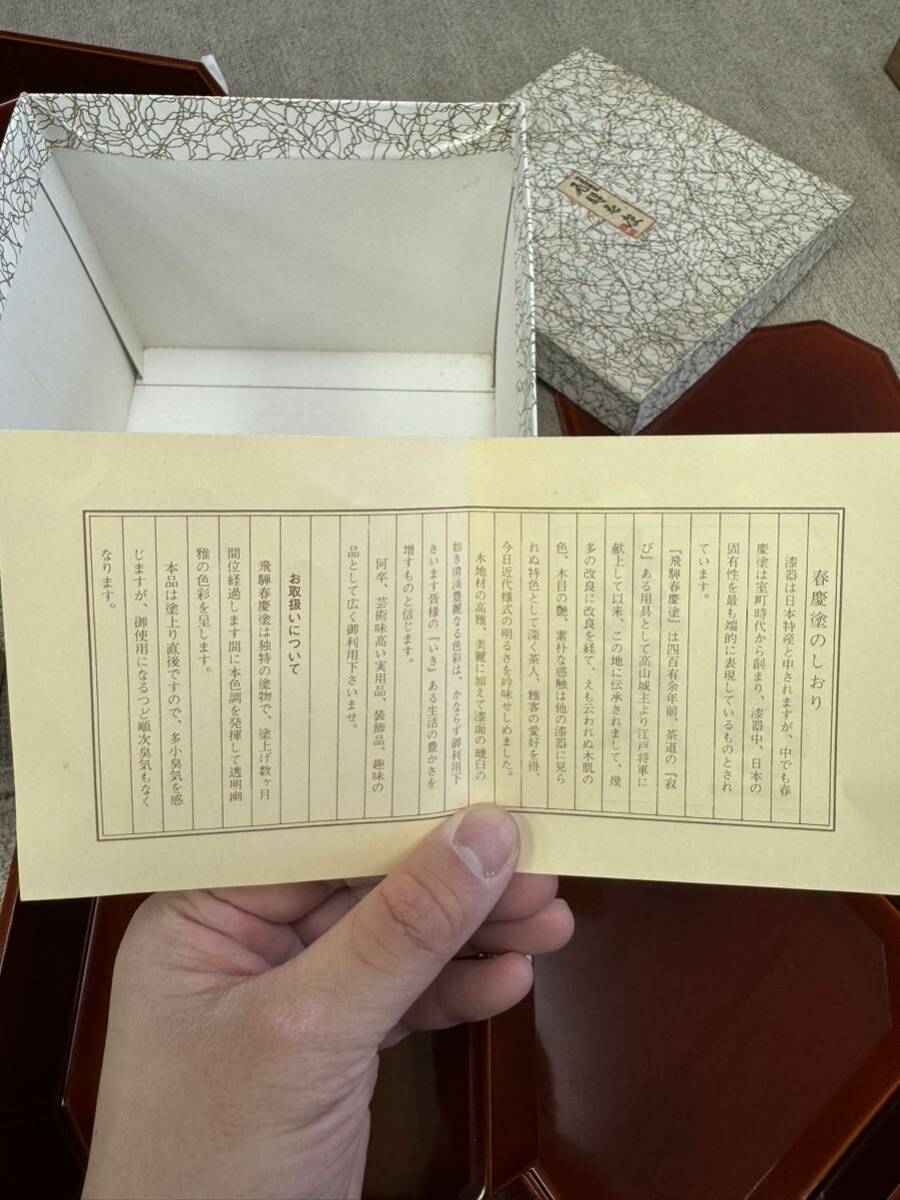 飛騨春慶
春慶塗のしおり
漆器は日本特産と申されますが、中でも春
慶塗は室町時代から創まり、漆器中、日本の
固有性を最も端的に表現しているものとされ
ています。
『飛騨春慶塗』は四百有余年前、茶道の『寂
び』ある用具として高山城主より江戸将軍に
献上して以来、この地に伝承されまして、幾
多の改良に改良を経て、えも云われぬ木肌の
色、木目の艶、素朴な感触は他の漆器に見ら
れぬ特色として深く茶人、雅客の愛好を得、
今日近代様式の明るさを吟味せしめました。
木地材の高雅、美麗に加えて漆面の琥白の
如き清淡豊麗なる色彩は、かならず御利用下
さいます皆様の『いき』ある生活の豊かさを
増すものと信じます。
何卒、芸術味高い実用品、装飾品、趣味の
品として広く御利用下さいませ。
お取扱いについて
飛騨春慶塗は独特の塗物で、塗上げ数ヶ月
間位経過します間に本色調を発揮して透明幽
雅の色彩を呈します。
本品は塗上り直後ですので、多小臭気を感
じますが、御使用になるつど順次臭気もなく
なります。